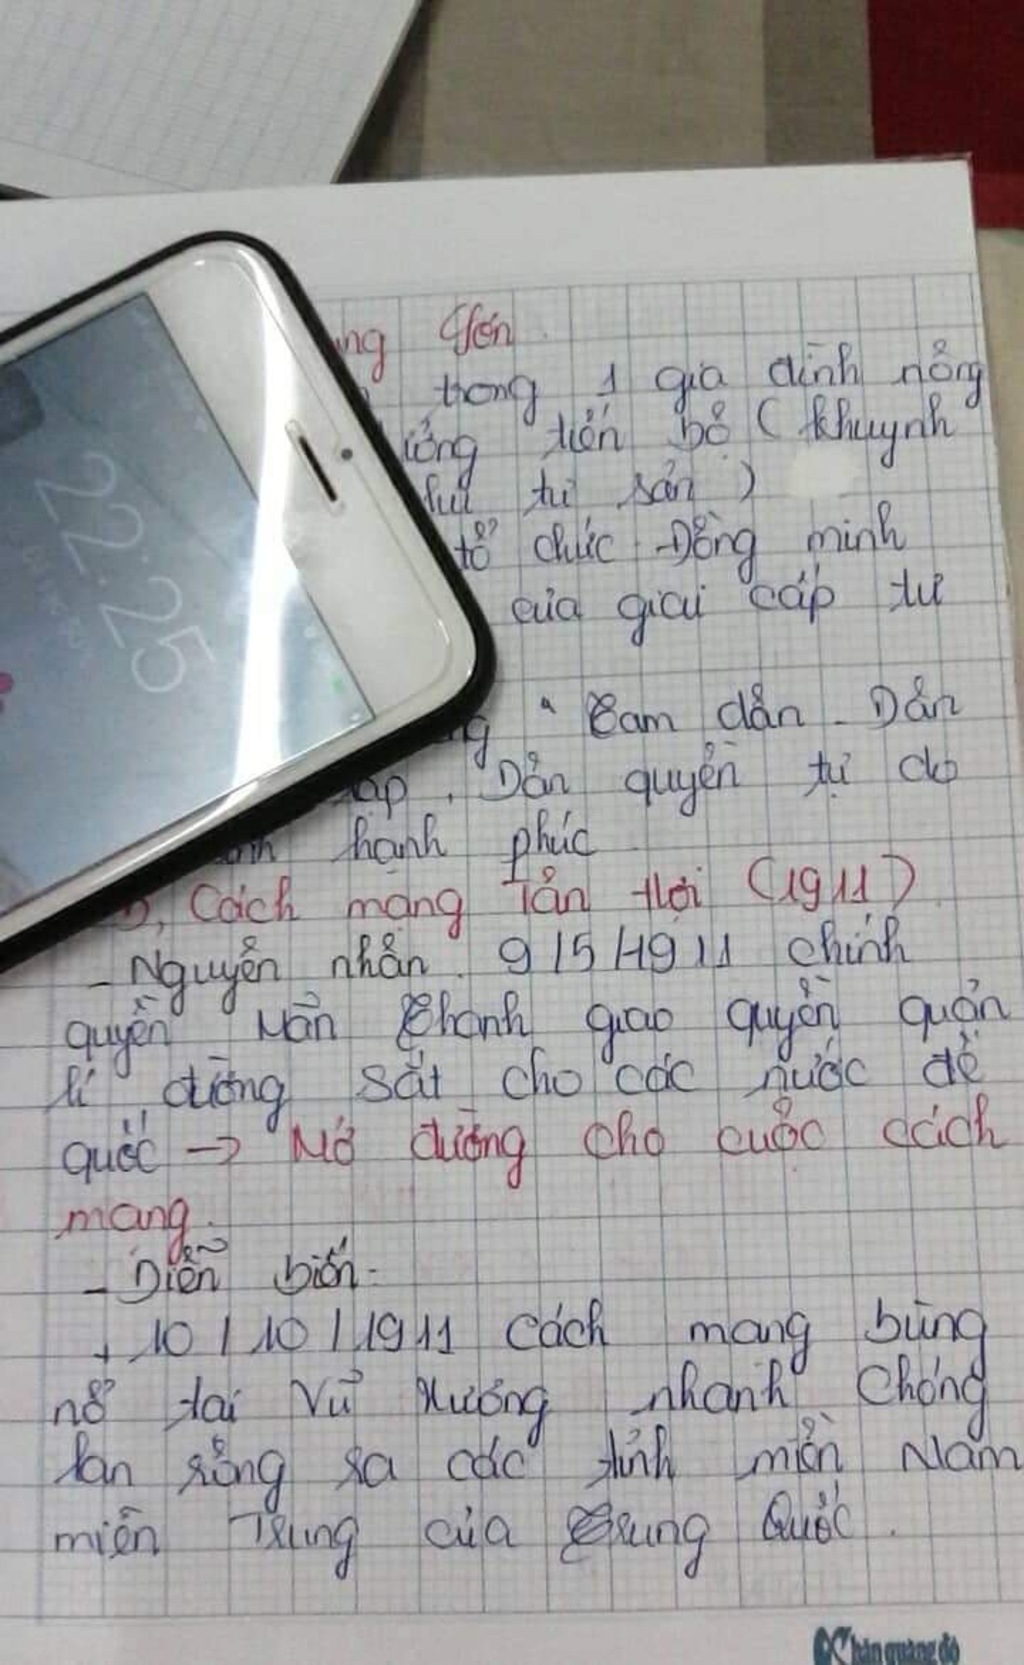 22:25
ng Sơn.
trong 1 gia đình nông
tiến bộ ( khuynh
tư sản )
tổ chức Đồng minh
của giai cấp tư
" Tam dân - Dân
lập, Dân quyền tự do
hạnh phúc
b, Cách mạng Tân Hợi (1911)
- Nguyên nhân. 9/5/1911 chính
quyền Mãn Thanh giao quyền quản
lí đường sắt cho các nước đế
quốc → Mở đường cho cuộc cách
mạng.
- Diễn biến.
+ 10/10/1911 cách mạng bùng
nổ tại Vũ Xương nhanh chóng
lan rộng ra các tỉnh miền Nam
miền Trung của Trung Quốc.